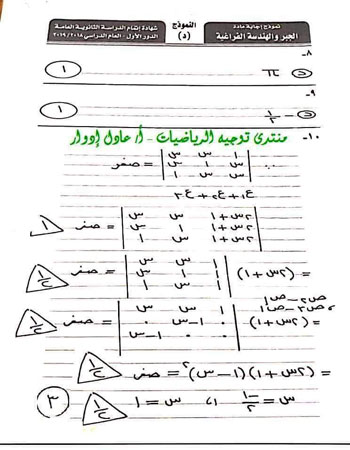 نموذج إجابة مادة
الجبر والهندسة الفراغية
النموذج
(د)
شهادة إتمام الدراسة الثانوية العامة
الدور الأول - العام الدراسي ٢٠١٨ / ٢٠١٩
٨-
د π ١
٩-
د - ١/٢ ١
١٠-
منتدى توجيه الرياضيات - أ/ عادل إدوار
| ١ س س |
| س ١ س | = صفر
| س س ١ |
ع١ + ع٢ + ع٣
| ٢س+١ س س |
| ٢س+١ ١ س | = صفر ١
| ٢س+١ س ١ |
| ١ س س |
= (٢س+١) | ١ ١ س | = صفر ١/٢
| ١ س ١ |
ص٢ - ص١
، ص٣ - ص١
| ١ س س |
= (٢س+١) | ٠ ١-س ٠ | = صفر ١/٢
| ٠ ٠ ١-س |
= (٢س+١)(١-س)² = صفر ١/٢
س = -١/٢ ، س = ١ ١/٢ ٣